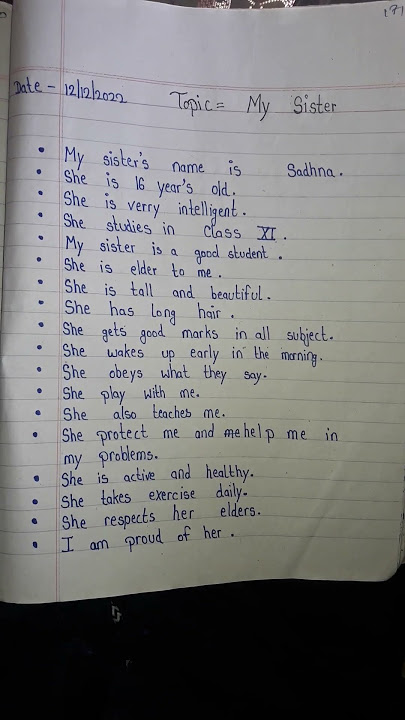 (7)
Date - 12/12/2022 Topic = My Sister
• My sister's name is Sadhna.
• She is 16 year's old.
• She is verry intelligent.
• She studies in Class XI.
• My sister is a good student.
• She is elder to me.
• She is tall and beautiful.
• She has long hair.
• She gets good marks in all subject.
• She wakes up early in the morning.
• She obeys what they say.
• She play with me.
• She also teaches me.
• She protect me and me help me in
my problems.
• She is active and healthy.
• She takes exercise daily.
• She respects her elders.
• I am proud of her.